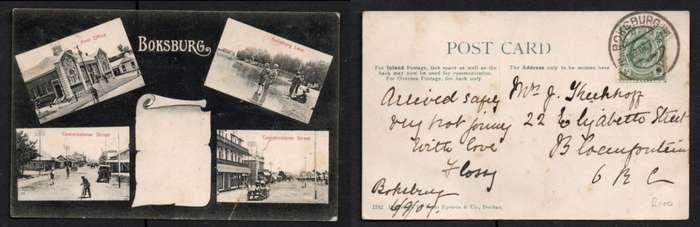 Post Office
BOKSBURG
Boksburg Lake
Commissioner Street
Commissioner Street
POST CARD
For Inland Postage, this space as well as the
back may now be used for communication.
For Oversea Postage, the back only
The Address only to be written here
BOKSBURG
Arrived safely
very hot journey
With love
Flossy
Boksburg
6/9/07.
Mrs J.
22 Elizabeth Street
Bloemfontein
O R C
Epstein & Co., Durban.
R100